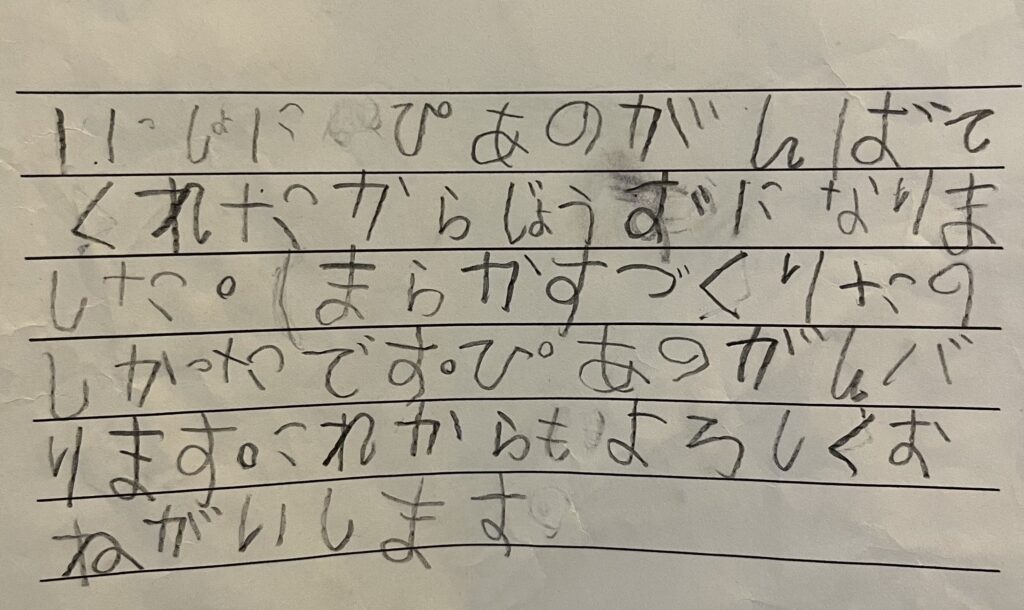 いっしょにぴあのがんばて
くれたからじょうずになりま
した。まらかすづくりたの
しかったです。ぴあのがんバ
ります。これからもよろしくお
ねがいします